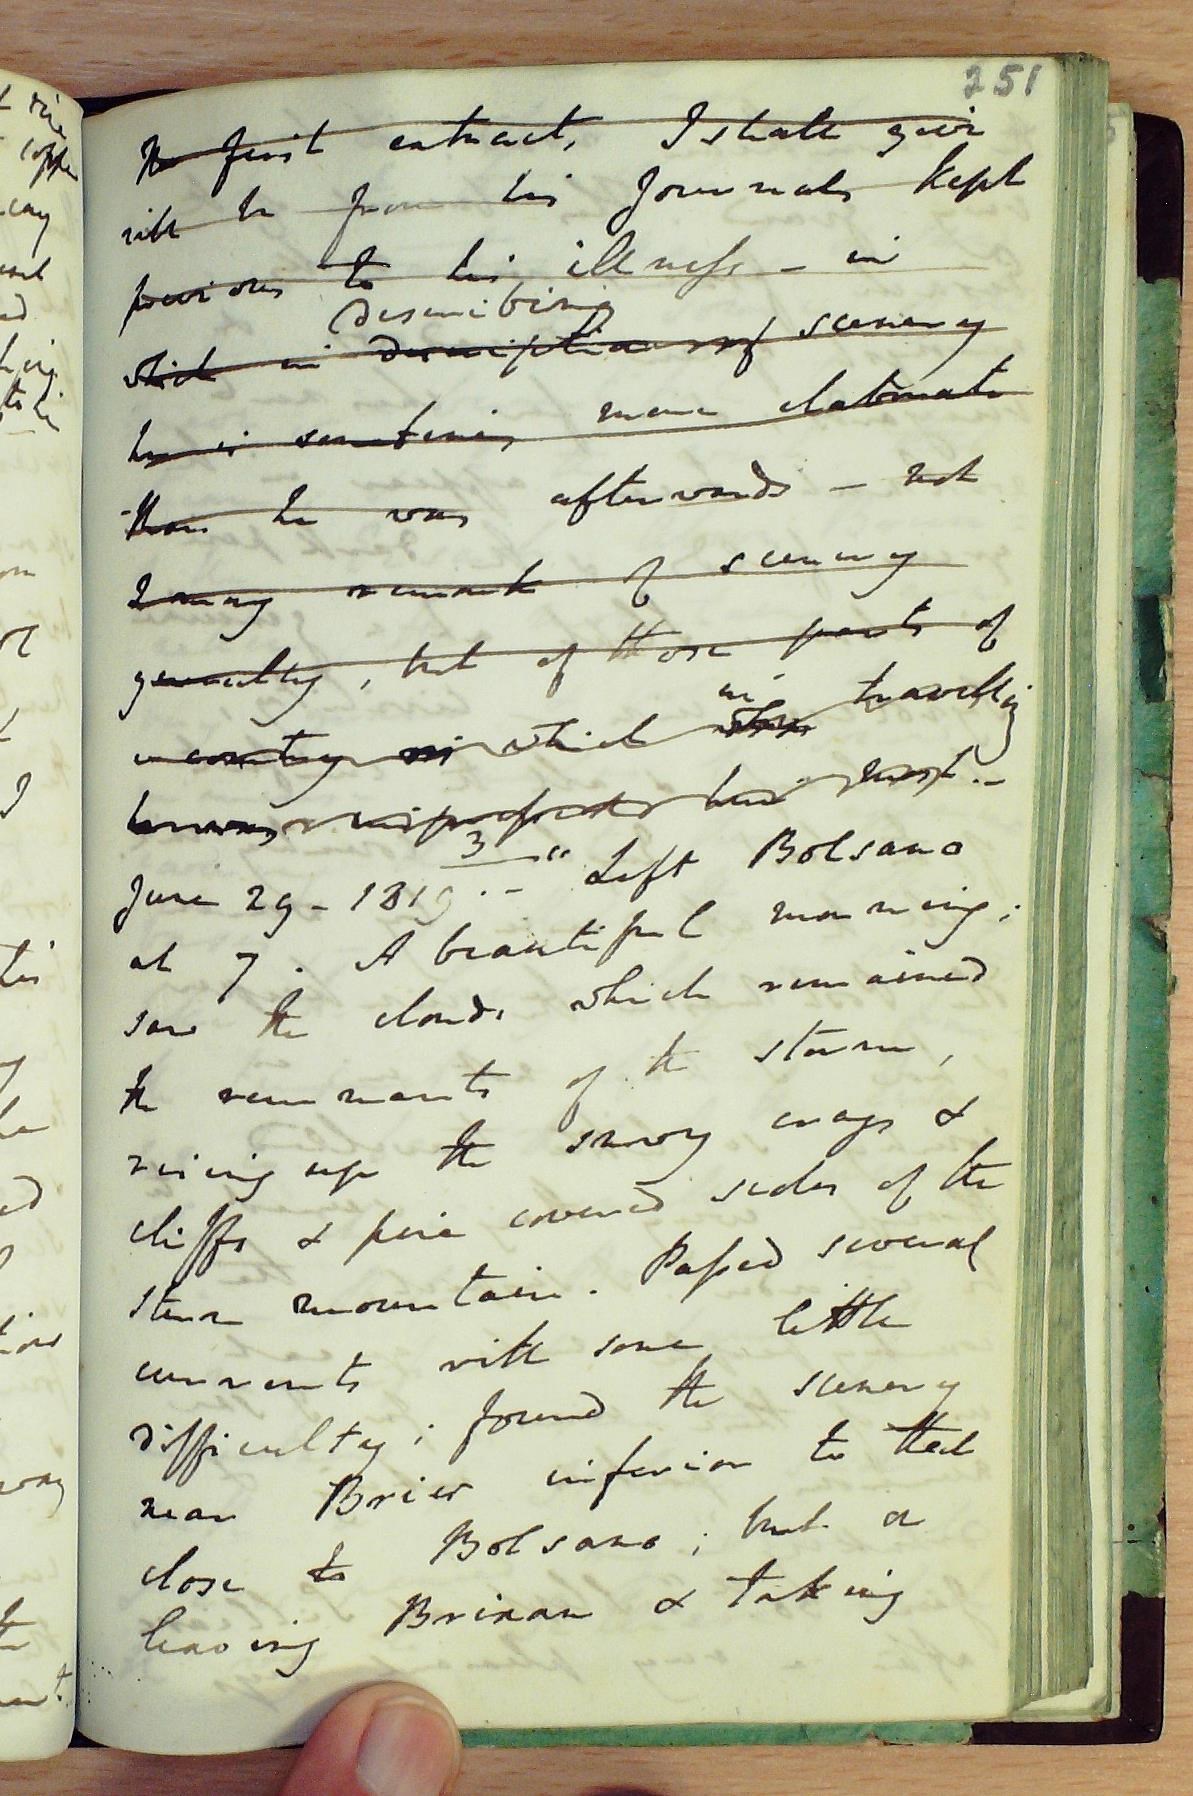 251
The first extract, I shall give
will be from his Journals kept
previous to his illness - in
describing
which in descriptions of scenery
he is sometimes more elaborate
than he was afterwards - not
I may remark of scenery
generally, but of those parts of
in
a country in which when travelling
June 29 - 1819 . - " Left Bolsano
3
at 7 . A beautiful morning ;
saw the clouds which remained
the remnants of the storm ,
rising up the snowy crags &
cliffs & pine covered sides of the
stern mountain . Passed several
currents with some little
difficulty ; found the scenery
near Brier inferior to that
close to Bolsano ; but on
leaving Brixan & taking